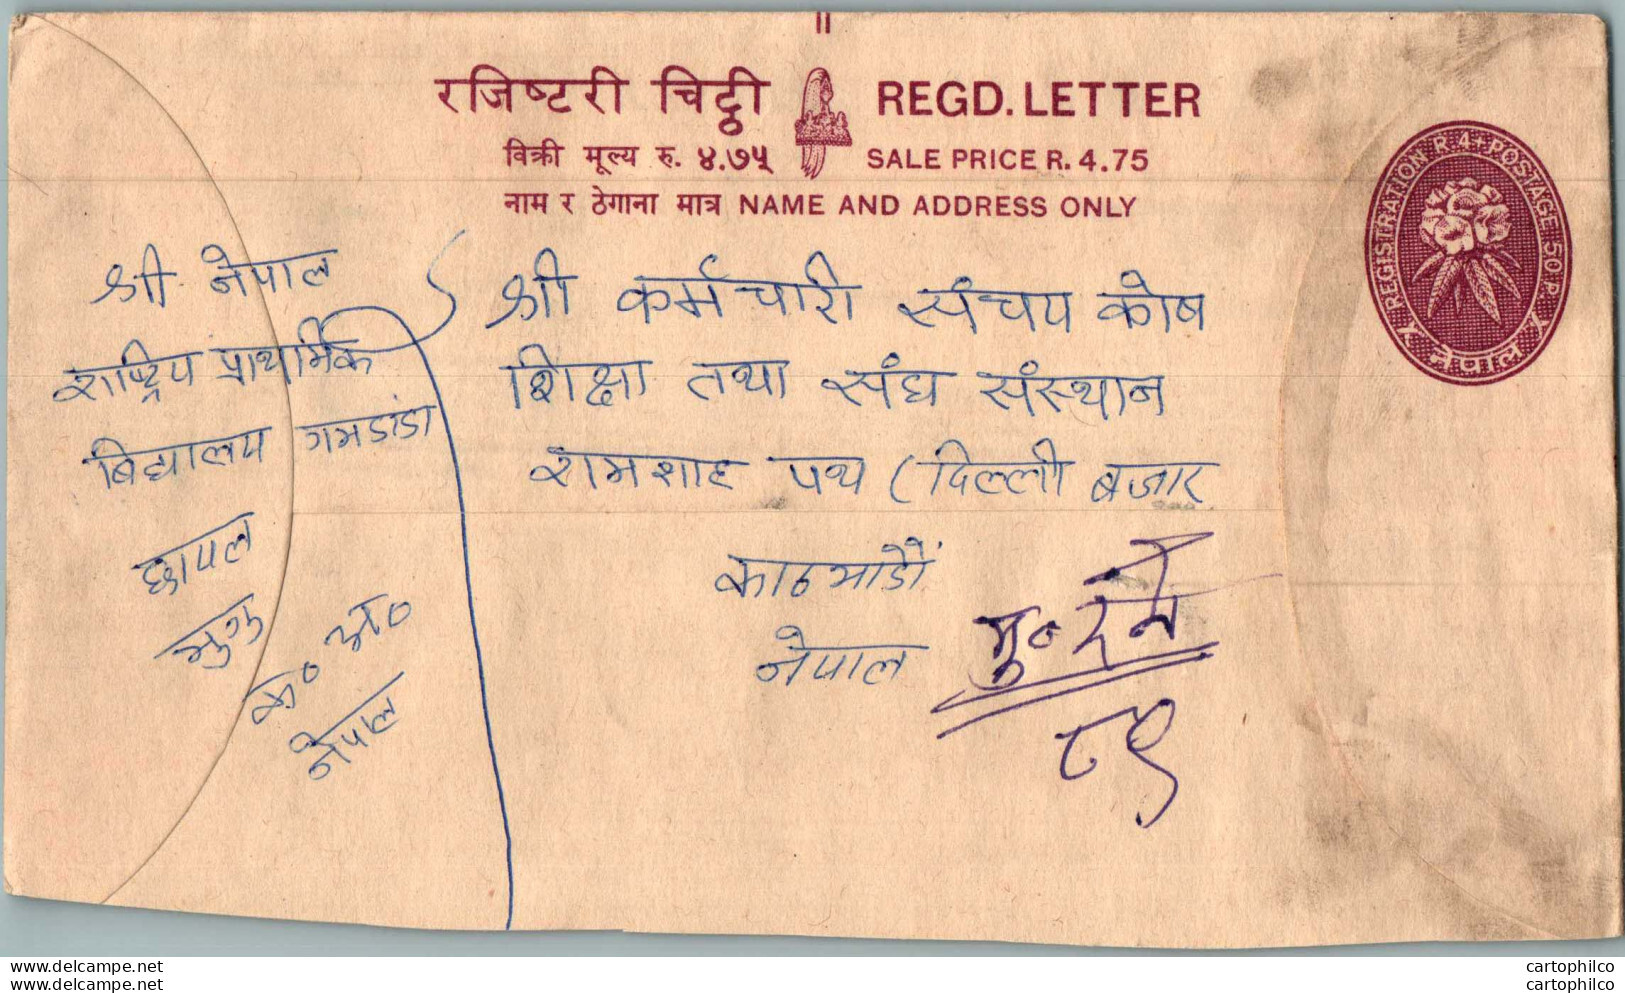 रजिष्टरी चिट्ठी REGD. LETTER
विक्री मूल्य रु. ४.७५ SALE PRICE R. 4.75
नाम र ठेगाना मात्र NAME AND ADDRESS ONLY
REGISTRATION R 4 + POSTAGE 50 P.
नेपाल
श्री नेपाल
राष्ट्रिय प्राथमिक
बिद्यालय गमडांडा
छापल
मुगु
क० अ०
नेपाल
श्री कर्मचारी संचय कोष
शिक्षा तथा संघ संस्थान
रामशाह पथ (दिल्ली बजार
काठमाडौं
नेपाल
मु० द न
८९
delcampe.net
delcampe.net
cartophilco
cartophilco